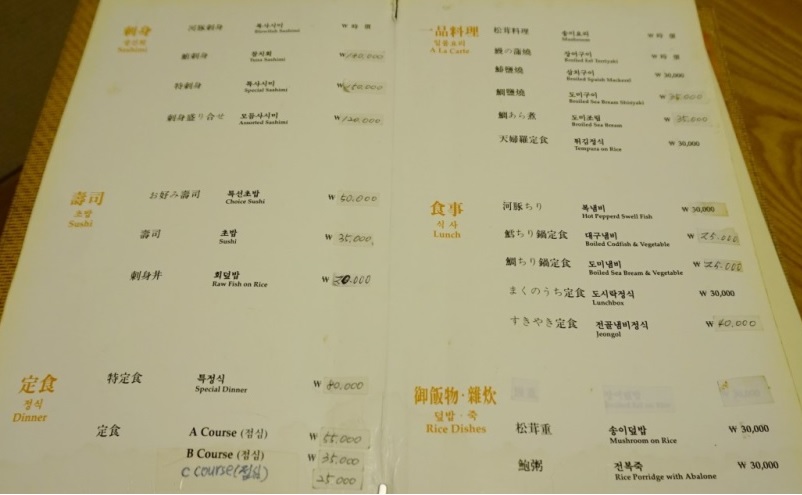 刺身
생선회
Sashimi
河豚刺身 복사시미 ₩ 時 價
Blowfish Sashimi
鯛刺身 참치회 ₩ 180,000
Tuna Sashimi
特刺身 특사시미 ₩ 150,000
Special Sashimi
刺身盛り合せ 모듬사시미 ₩ 120,000
Assorted Sashimi
壽司
초밥
Sushi
お好み壽司 특선초밥 ₩ 50,000
Choice Sushi
壽司 초밥 ₩ 35,000
Sushi
刺身丼 회덮밥 ₩ 20,000
Raw Fish on Rice
定食
정식
Dinner
特定食 특정식 ₩ 80,000
Special Dinner
定食 A Course (점심) ₩ 55,000
B Course (점심) ₩ 35,000
C course(점심) 25,000
一品料理
일품요리
A La Carte
松茸料理 송이요리 ₩ 時 價
Mushroom
鰻の蒲燒 장어구이 ₩ 時 價
Broiled Eel
鰆鹽燒 삼치구이 ₩ 30,000
Broiled Spanish Mackerel
鯛鹽燒 도미구이 ₩ 35,000
Broiled Sea Bream Shioyaki
鯛あら煮 도미조림 ₩ 35,000
Broiled Sea Bream
天婦羅定食 튀김정식 ₩ 30,000
Tempura on Rice
食事
식 사
Lunch
河豚ちり 복냄비 ₩ 30,000
Hot Pepperd Swell Fish
鱈ちり鍋定食 대구냄비 ₩ 25,000
Boiled Codfish & Vegetable
鯛ちり鍋定食 도미냄비 ₩ 25,000
Boiled Sea Bream & Vegetable
まくのうち定食 도시락정식 ₩ 30,000
Lunchbox
すきやき定食 전골냄비정식 ₩ 40,000
Jeongol
御飯物·雜炊
덮밥·죽
Rice Dishes
松茸重 송이덮밥 ₩ 30,000
Mushroom on Rice
鮑粥 전복죽 ₩ 30,000
Rice Porridge with Abalone